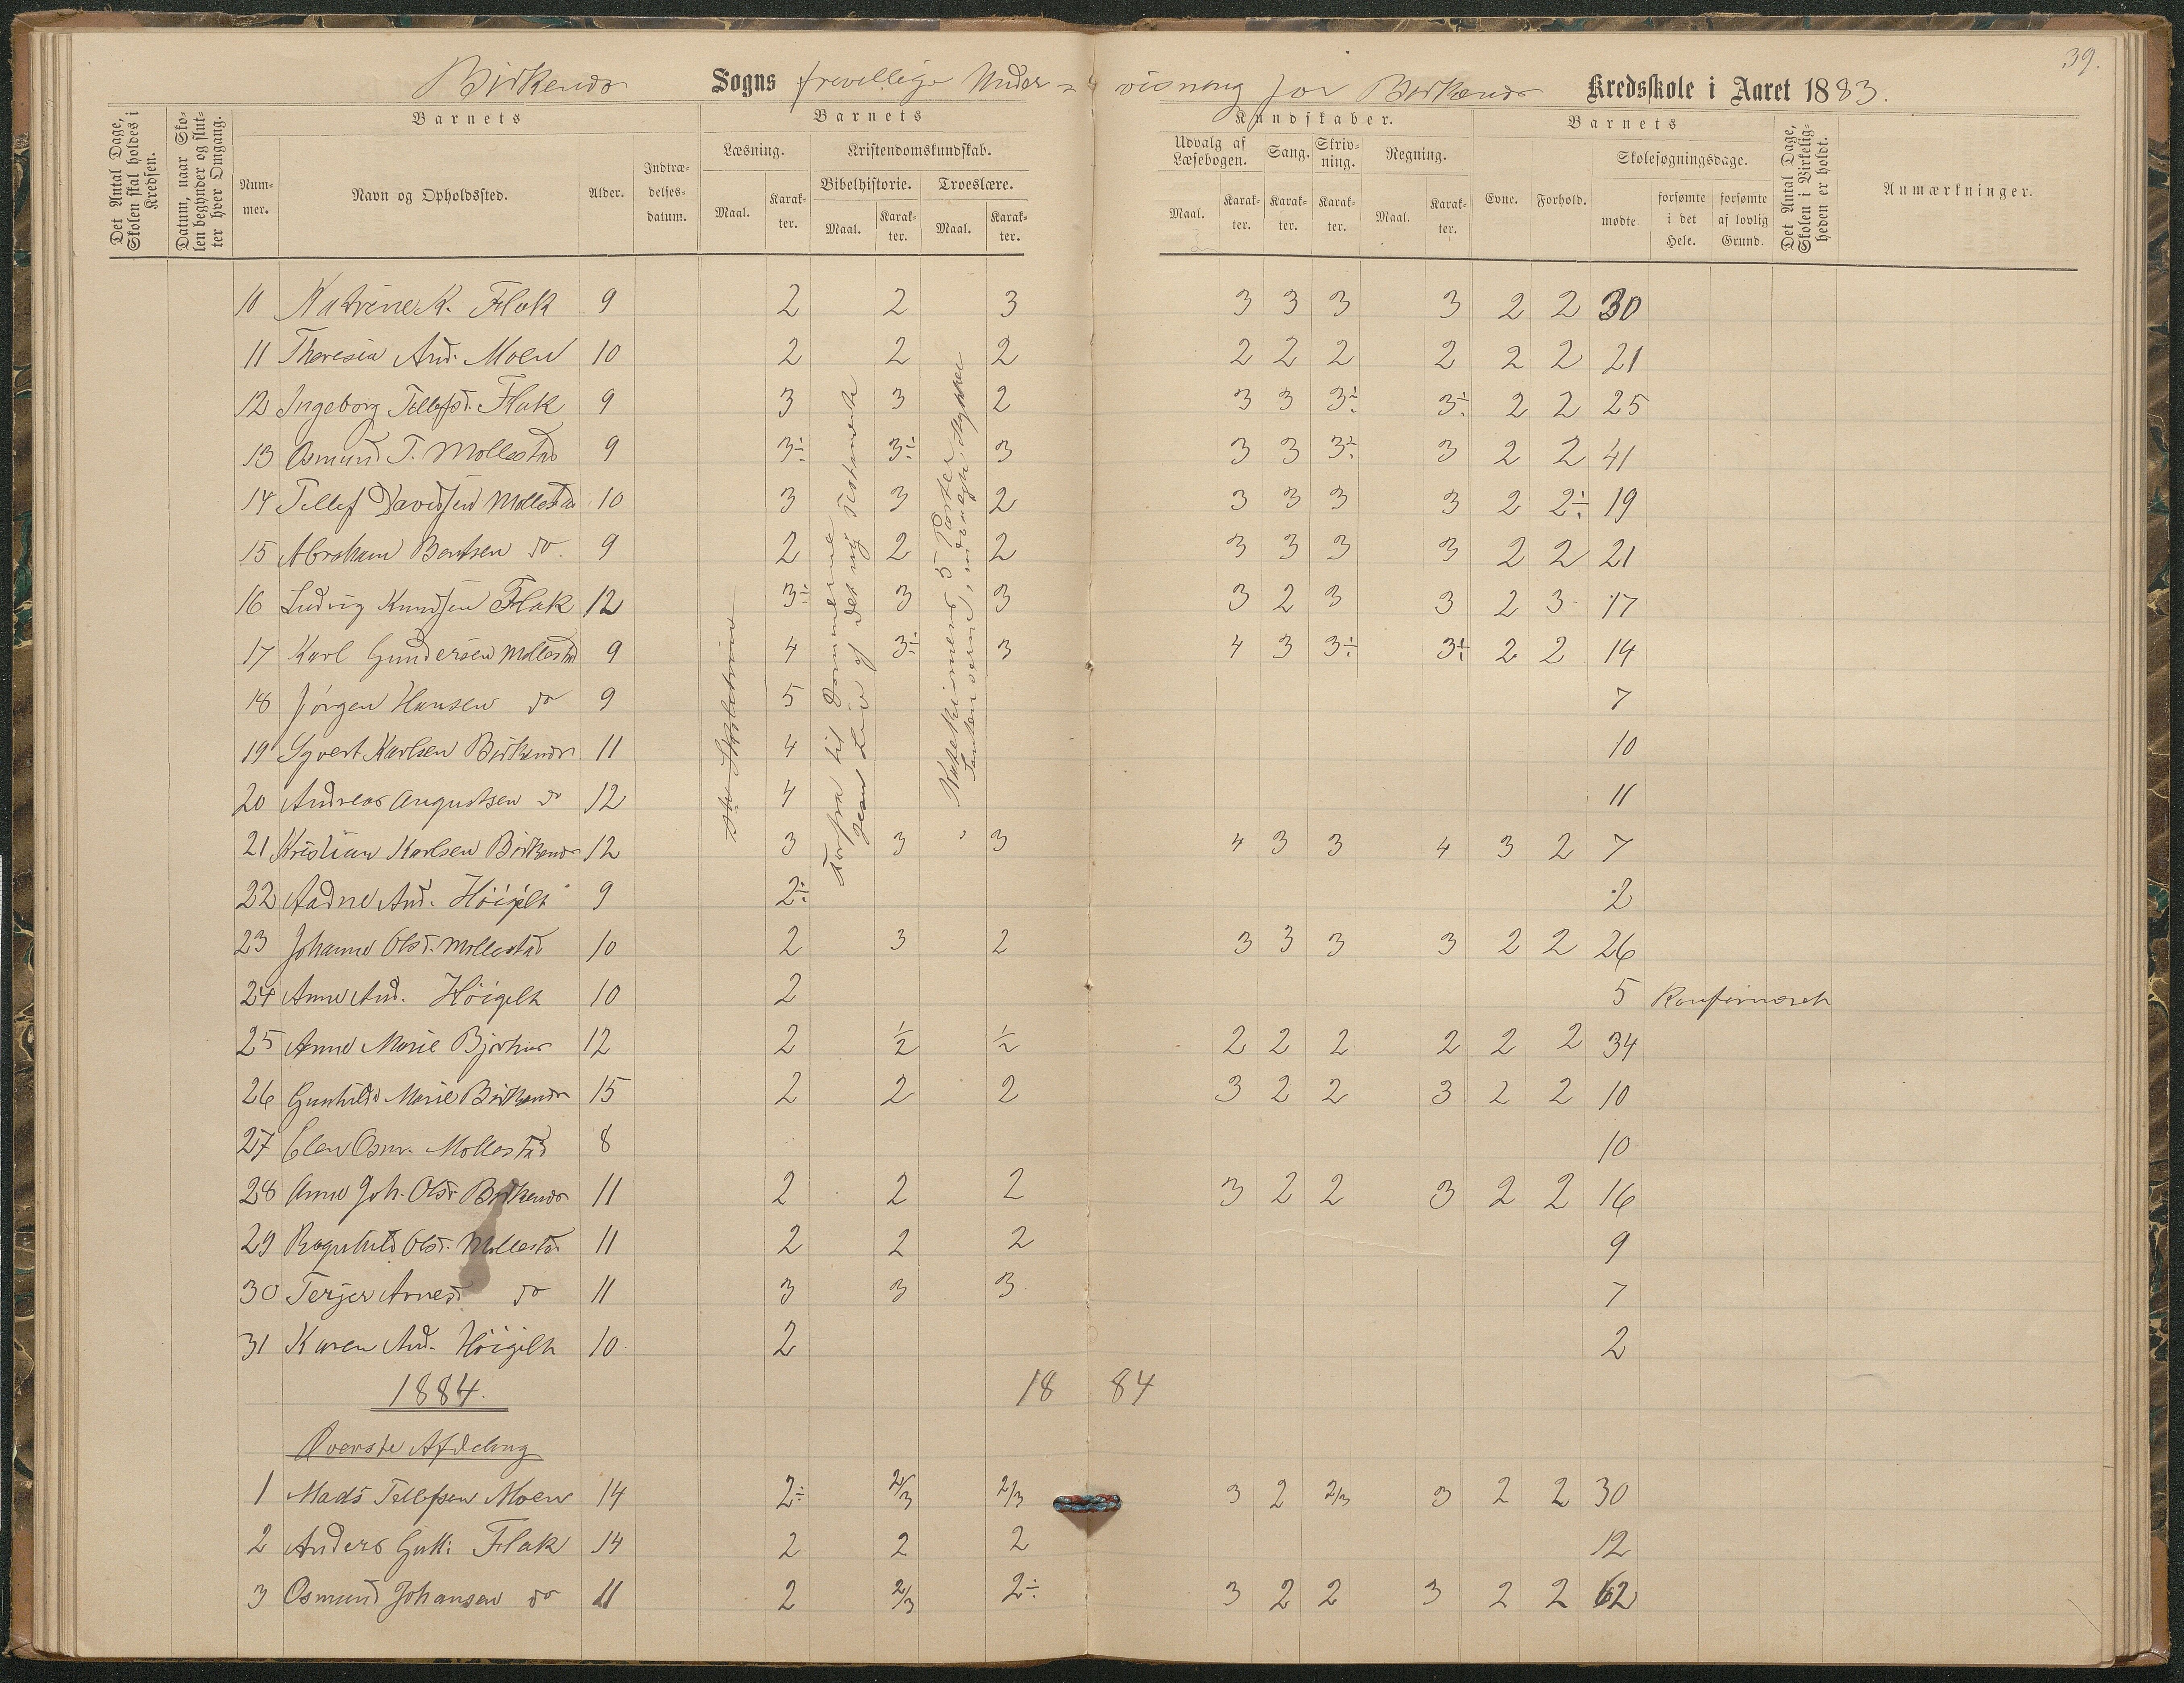 39.
Birkenes Sogns frivillige Under- visning for Birkenes Kredsskole i Aaret 1883.
Det Antal Dage, Skolen skal holdes i Kredsen.
Datum, naar Skolen begynder og slutter hver Omgang.
Barnets
Nummer.
Navn og Opholdssted.
Alder.
Indtrædelsesdatum.
Barnets
Læsning.
Maal.
Karakter.
Kristendomskundskab.
Bibelhistorie.
Maal.
Karakter.
Troeslære.
Maal.
Karakter.
Kundskaber.
Udvalg af Læsebogen.
Maal.
Karakter.
Sang.
Karakter.
Skrivning.
Karakter.
Regning.
Maal.
Karakter.
Barnets
Evne.
Forhold.
Skolesøgningsdage.
mødte.
forsømte i det Hele.
forsømte af lovlig Grund.
Det Antal Dage, Skolen i Virkeligheden er holdt.
Anmærkninger.
10 Katrine K. Flak 9 2 2 3 3 3 3 3 2 2 30
11 Theresia And. Moen 10 2 2 2 2 2 2 2 2 2 21
12 Ingeborg Tellefsd. Flak 9 3 3 2 3 3 3÷ 3÷ 2 2 25
13 Osmund T. Mollestad 9 3÷ 3÷ 3 3 3 3÷ 3 2 2 41
14 Tellef Davidsen Mollestad 10 3 3 2 3 3 3 3 2 2÷ 19
15 Abraham Bentsen do. 9 2 2 2 3 3 3 3 2 2 21
16 Ludvig Knudsen Flak 12 3÷ 3 3 3 2 3 3 2 3 17
17 Karl Gundersen Mollestad 9 4 3÷ 3 4 3 3÷ 3÷ 2 2 14
18 Jørgen Hansen do 9 5 7
19 Syvert Karlsen Birkenes 11 4 10
20 Andreas Augustsen do 12 4 11
21 Kristian Karlsen Birkenes 12 3 3 3 4 3 3 4 3 2 7
22 Aadne And. Höigilt 9 2÷ 2
23 Johanne Olsd. Mollestad 10 2 3 2 3 3 3 3 2 2 26
24 Anne And. Höigilt 10 2 5 Konfirmeret
25 Anne Marie Bjorhus 12 2 1/2 1/2 2 2 2 2 2 2 34
26 Gunhilde Marie Birkenes 15 2 2 2 3 2 2 3 2 2 10
27 Elen Osm. Mollestad 8 10
28 Anne Joh. Olsd. Birkenes 11 2 2 2 3 2 2 3 2 2 16
29 Ragnhild Olsd. Mollestad 11 2 2 2 9
30 Terjer Arnesd do 11 3 3 3 7
31 Karen And. Höigilt 10 2 2
Forfra til Dommerne
Jesu Liv af det ny Testamente
Katekismens 5 Parter
1884. 18 84
Øverste Afdeling
1 Mads Tellefsen Moen 14 2÷ 2/3 2/3 3 2 2/3 3 2 2 30
2 Anders Gutt. Flak 14 2 2 2 12
3 Osmund Johansen do 11 2 2/3 2÷ 3 2 2 3 2 2 62